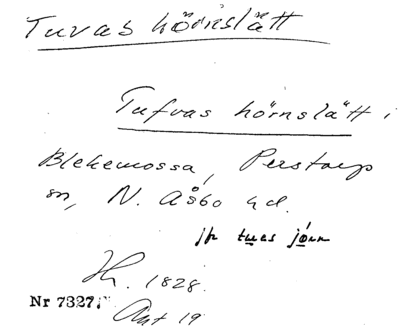 Tuvas hörnslätt
Tufvas hörnslätt i
Blekemossa, Perstorp
sn, N. Åsbo hd.
jfr tues jörr
Hh. 1828.
Nr 7327.
Akt 19